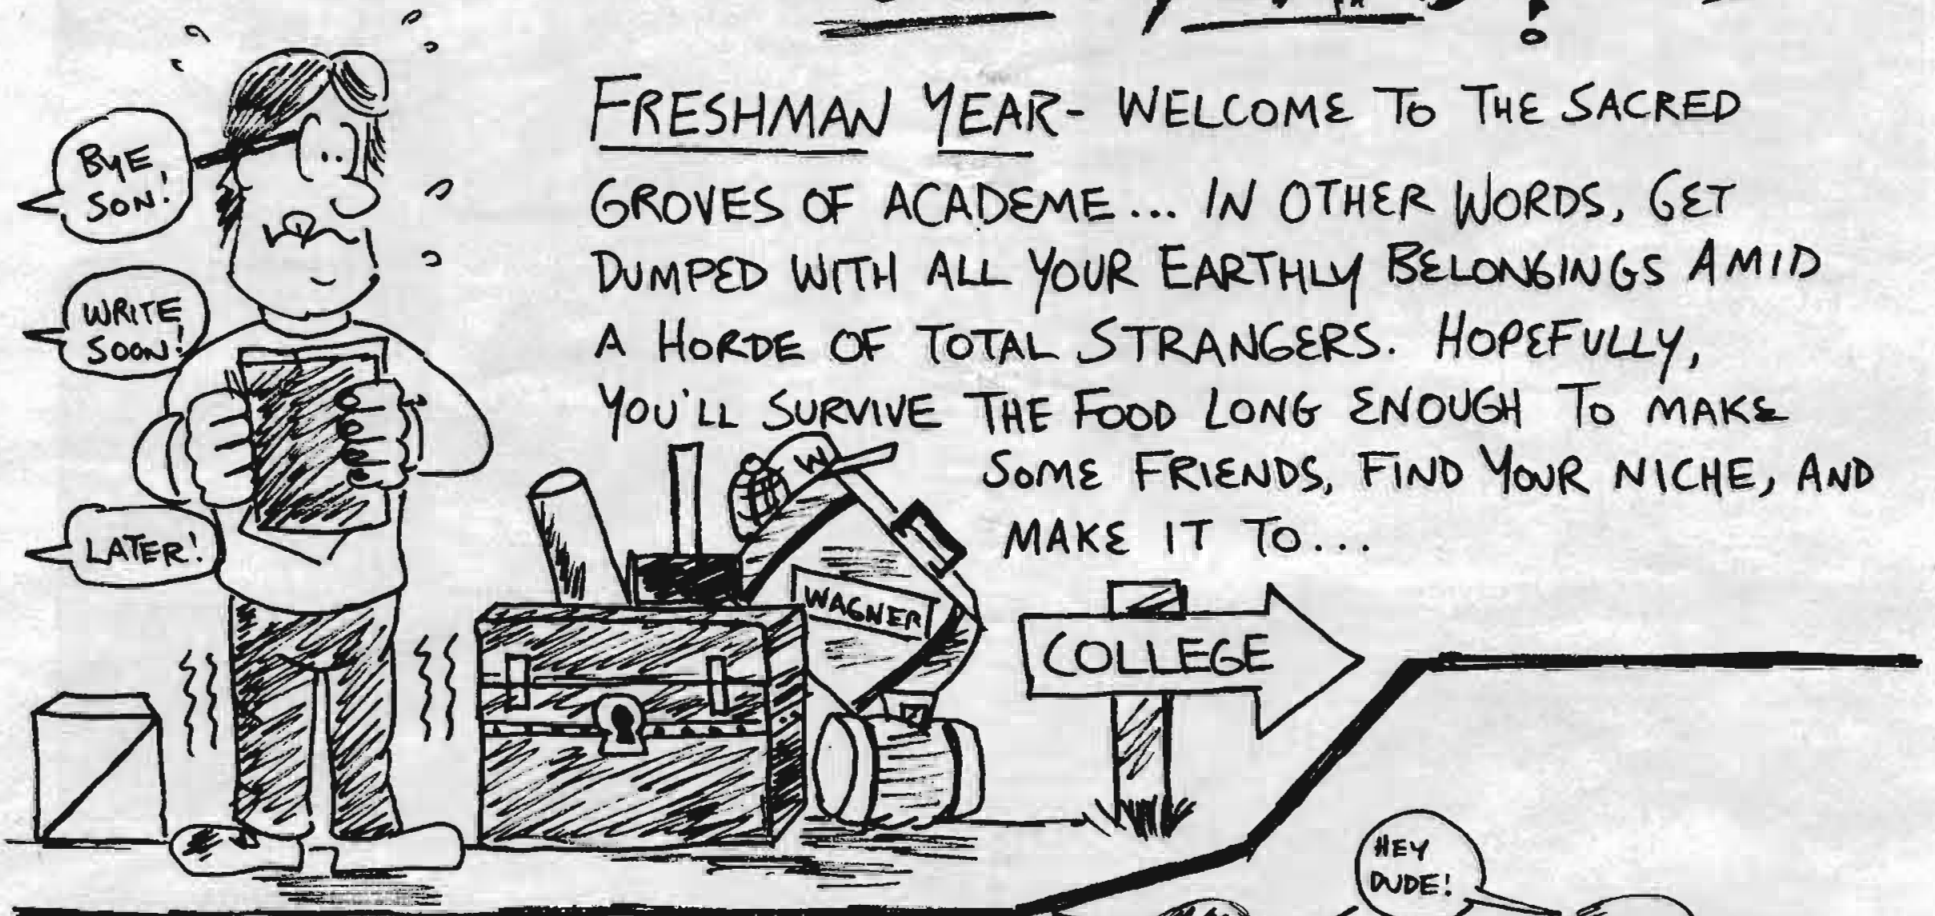 FRESHMAN YEAR- WELCOME TO THE SACRED
GROVES OF ACADEME... IN OTHER WORDS, GET
DUMPED WITH ALL YOUR EARTHLY BELONGINGS AMID
A HORDE OF TOTAL STRANGERS. HOPEFULLY,
YOU'LL SURVIVE THE FOOD LONG ENOUGH TO MAKE
SOME FRIENDS, FIND YOUR NICHE, AND
MAKE IT TO...
BYE,
SON!
WRITE
SOON!
LATER!
W
WAGNER
COLLEGE
HEY
DUDE!